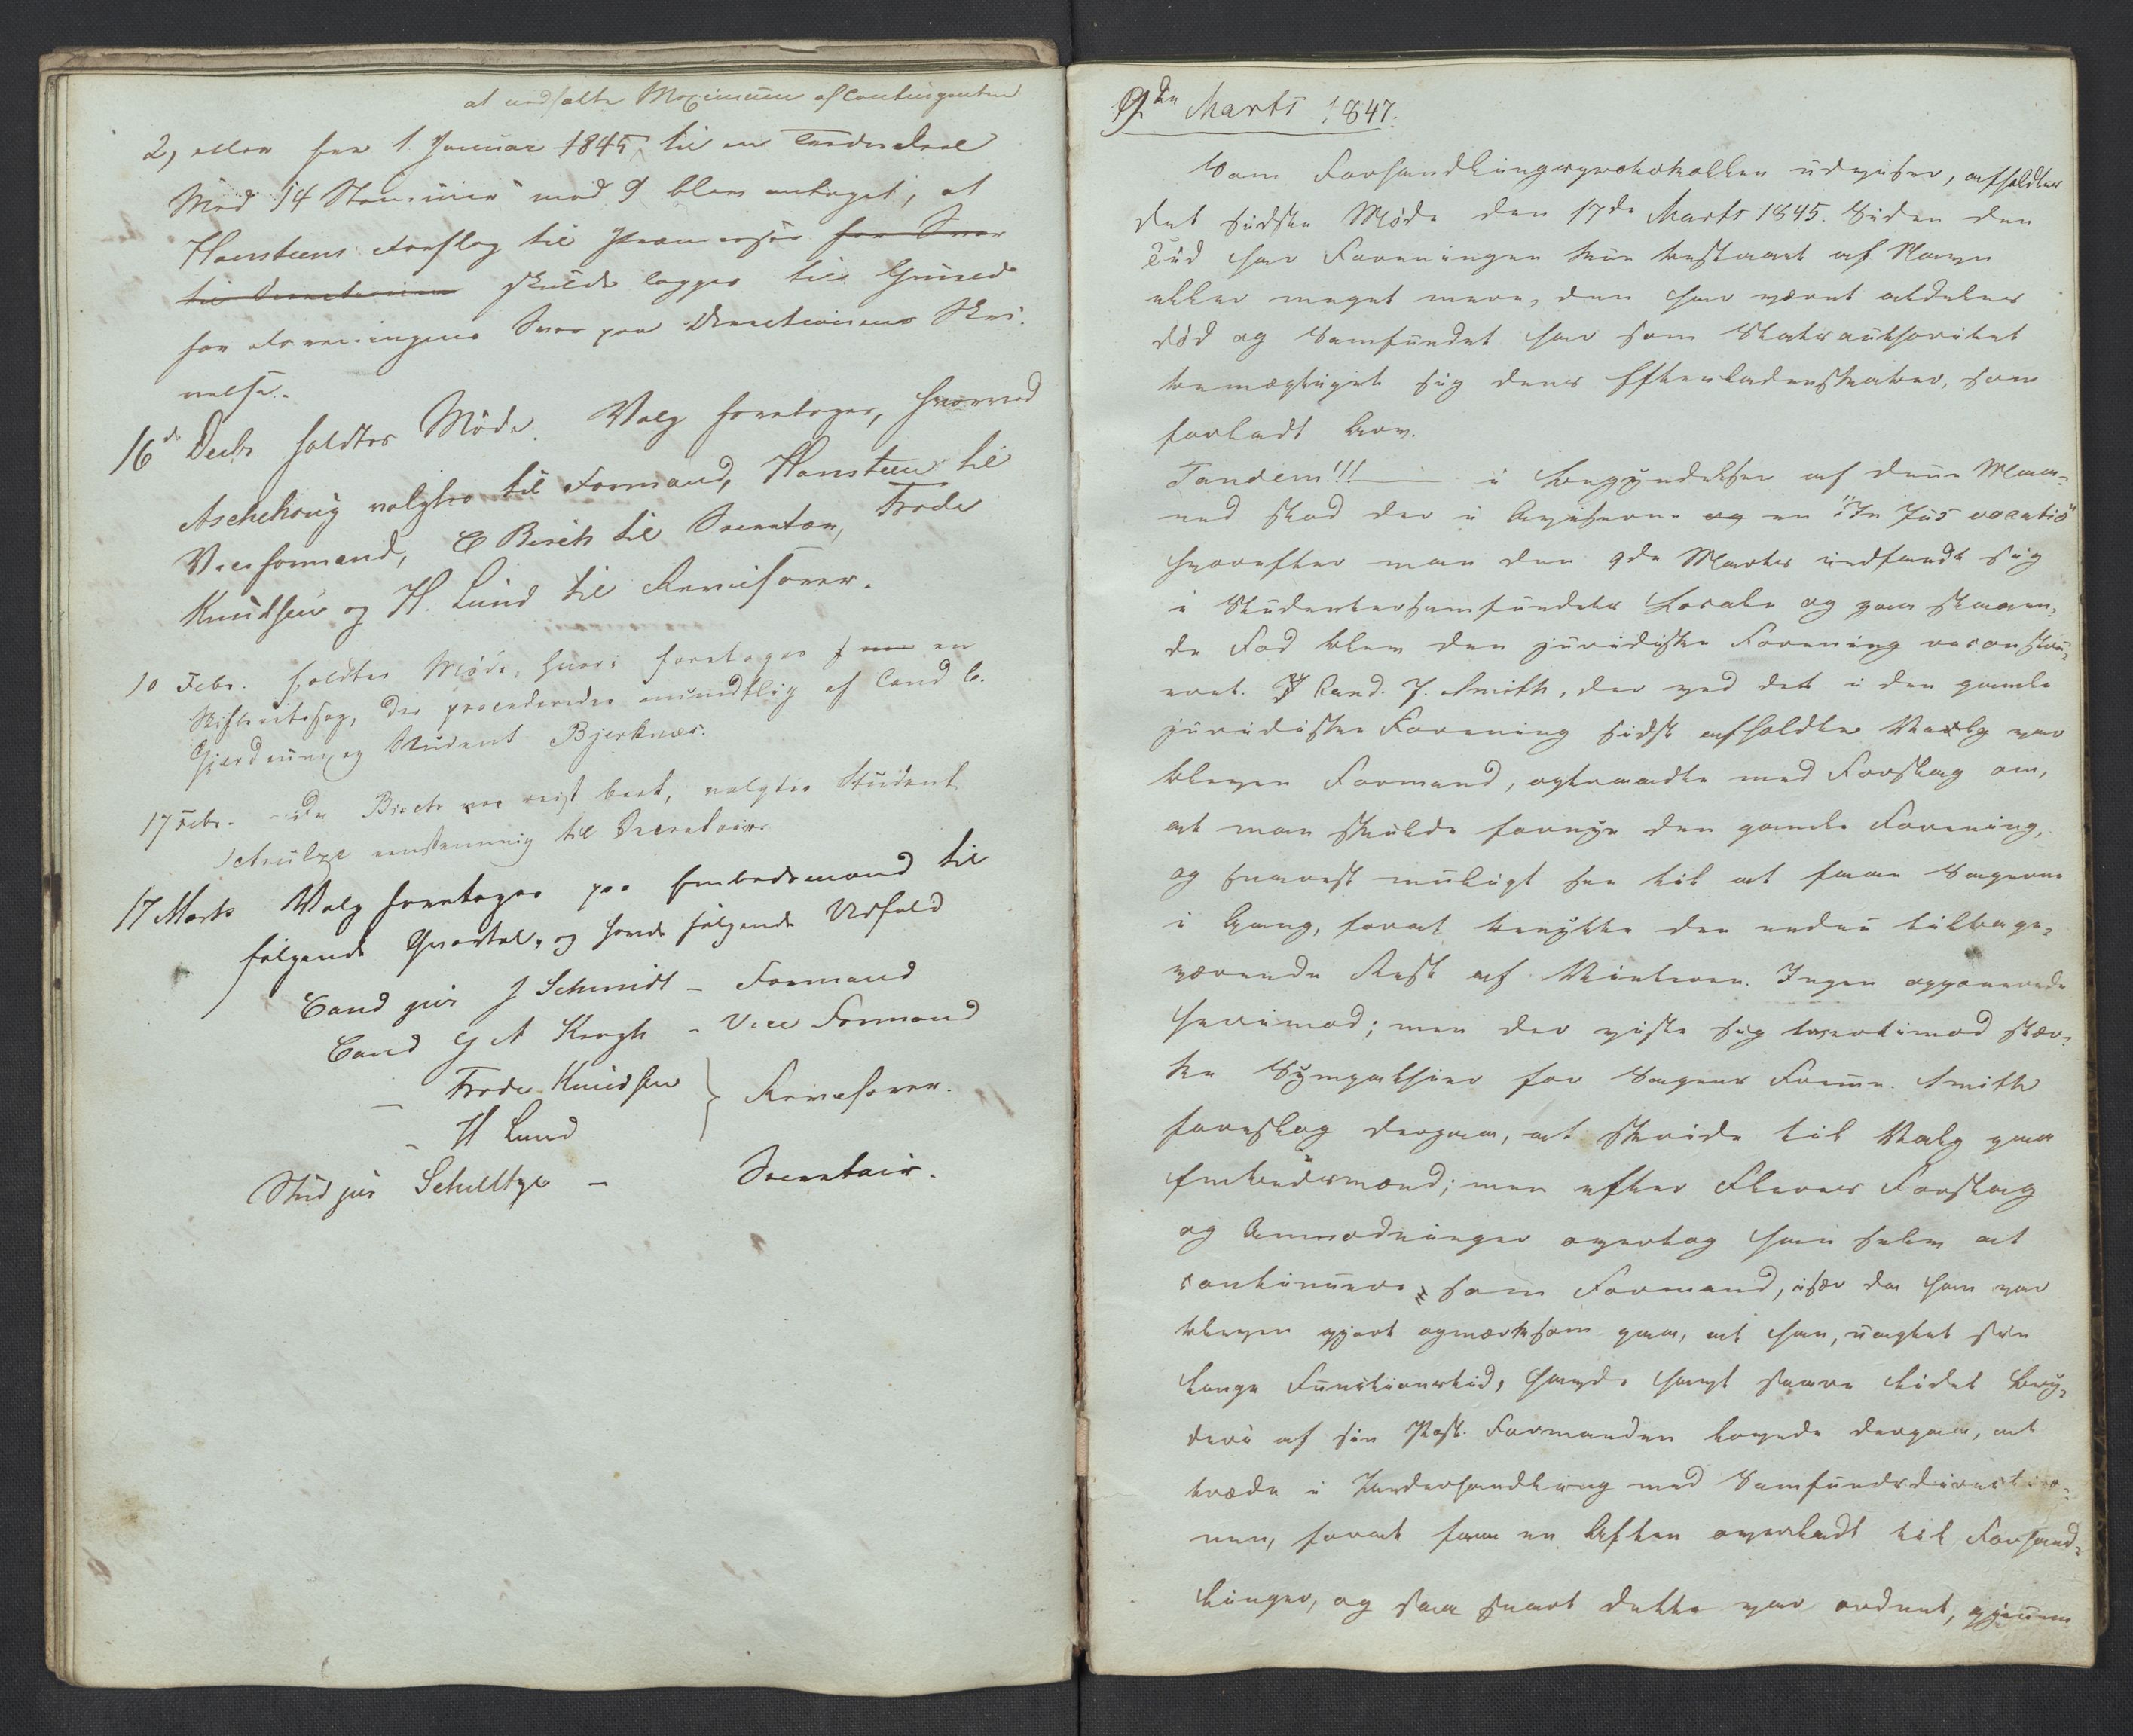 at nedsætte Maximum af Contingenten
2, eller fra 1 Januar 1845 til en Trediedeel
Med 14 Stemmer mod 9 blev antaget, at
Hansteens Forslag til Præmisser for Svar
til Directionen skulde lægges til Grund
for Foreningens Svar paa Directionens Skri-
velse.
16de Decbr holdtes Møde. Valg foretoges, hvorved
Aschehoug valgtes til Formand, Hansteen til
Viceformand, E Birch til Secretær, Frode
Knudsen og H. Lund til Revisorer.
10 Febr. holdtes Møde, hvori foretoges en
Skifteretssag, der procederedes mundtlig af Cand C.
Gjerdrum og Student Bjerknæs.
17 Febr. da Birch var reist bort, valgtes Student
Schultze eenstemmig til Secretair.
17 Marts Valg foretoges paa Embedsmænd til
følgende Qvartal, og havde følgende Udfald
Cand jur J Schmidt - Formand
Cand G A Krogh - Vice Formand
- Frode Knudsen } Revisorer.
- H Lund
Stud jur Schultze - Secretair.
9de Marts 1847.
Som Forhandlingsprotokollen udviser, afholdtes
det sidste Møde den 17de Marts 1845. Siden den
Tid har Foreningen kun bestaaet af Navn
eller meget mere, den har været aldeles
død og Samfundet har som Skatsauthoritet
bemægtiget sig dens Efterladenskaber, som
forladt
Tandem!!! — i Begyndelsen af denne Maa-
ned stod der i Aviserne og en "In Jus vocatio"
hvorefter man den 9de Marts indfandt sig
i Studentersamfundets Locale og paa staaen-
de Fod blev den juridiske Forening reconstru-
eret. Cand. J. Smith, der ved det i den gamle
juridiske Forening sidst afholdte Valg var
bleven Formand, optraadte med Forslag om,
at man skulde fornye den gamle Forening,
og snarest muligt see til at faae Sagerne
i Gang, forat benytte den endnu tilbage-
værende Rest af Vinteren. Ingen opponerede
herimod; men der viste sig tvertimod stær-
ke Sympathier for Sagens Fremme. Smith
foreslog derpaa, at skride til Valg paa
Embedsmænd; men efter Fleres Forslag
og Anmodninger overtog han selv at
continuere som Formand, især da han var
bleven gjort opmærksom paa, at han, uagtet sin
lange Functionstid, havde havt saare lidet Bry-
deri af sin Post. Formanden lovede derpaa, at
træde i Underhandling med Samfundsdirectio-
nen, forat faae en Aften overladt til Forhand-
linger, og saa snart dette var ordnet, gjennem